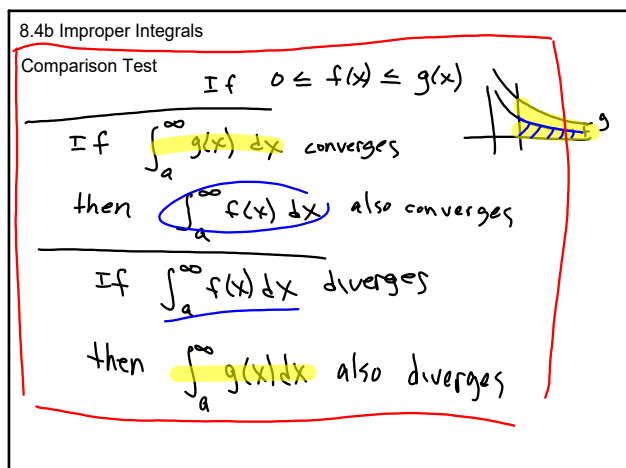 8.4b Improper Integrals
Comparison Test
If 0 ≤ f(x) ≤ g(x)
g
f
If ∫_a^∞ g(x) dx converges
then ∫_a^∞ f(x) dx also converges
If ∫_a^∞ f(x) dx diverges
then ∫_a^∞ g(x) dx also diverges